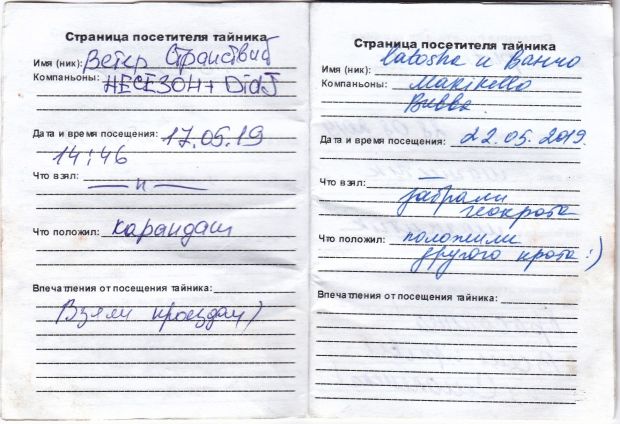 Страница посетителя тайника
Имя (ник): Ветер Странствий
Компаньоны: НЕСЕЗОН + DidJ
Дата и время посещения: 17.05.19
14:46
Что взял: — н —
Что положил: карандаш
Впечатления от посещения тайника:
Взяли проездом)
Страница посетителя тайника
Имя (ник): Latosha и Ванчо
Компаньоны: Makikello
Вивва
Дата и время посещения: 22.05.2019.
Что взял: —
забрали
геокрота
Что положил: положили
другого крота :)
Впечатления от посещения тайника: